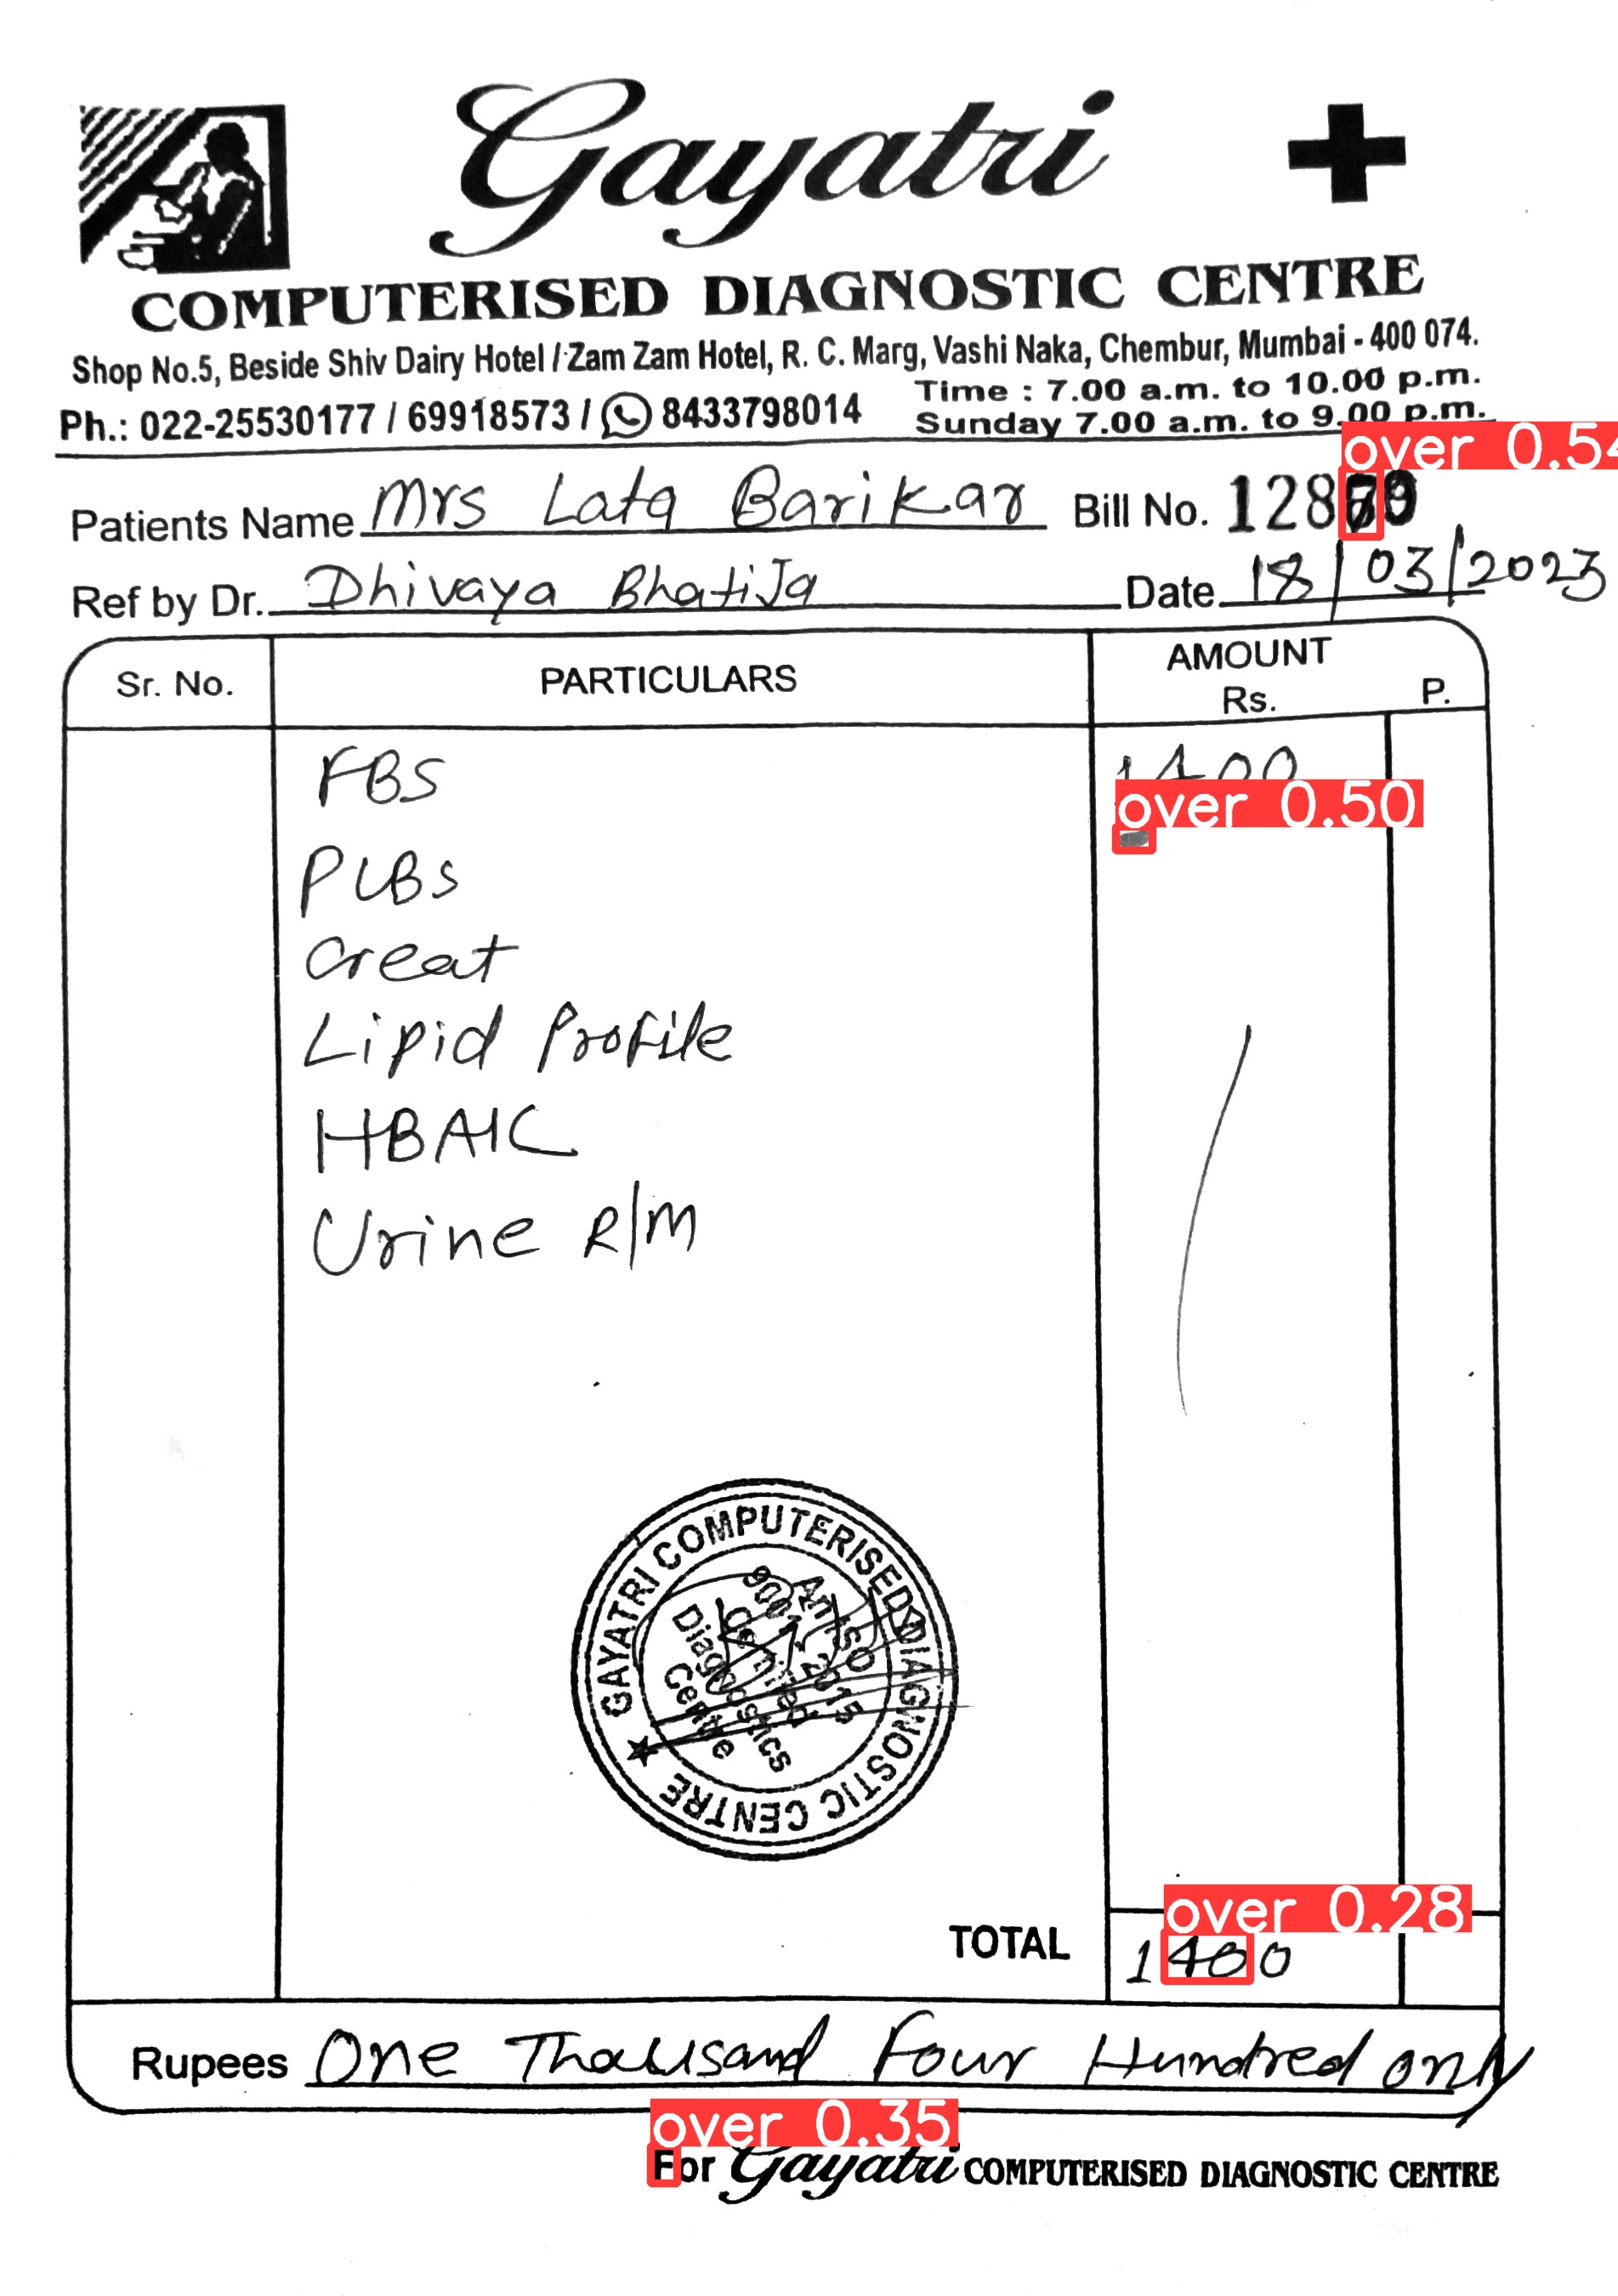 Gayatri
COMPUTERISED DIAGNOSTIC CENTRE
Shop No.5, Beside Shiv Dairy Hotel / Zam Zam Hotel, R. C. Marg, Vashi Naka, Chembur, Mumbai - 400 074.
Time : 7.00 a.m. to 10.00 p.m.
Ph.: 022-25530177 / 69918573 / 8433798014
Sunday 7.00 a.m. to 9.00 p.m.
over 0.54
Patients Name Mrs Lata Barikar Bill No.
Ref by Dr. Dhivaya Bhatija Date 18/03/2023
Sr. No. PARTICULARS AMOUNT Rs. P.
FBS 1400
over 0.50
PLBS
Creat
Lipid Profile
HBAIC
Urine R/M
GAYATRI COMPUTERISED DIAGNOSTIC CENTRE
An ISO
9001 2015
Certified
Diagnostics
Centre
over 0.28
TOTAL 1400
Rupees One Thousand Four Hundred only
over 0.35
For Gayatri COMPUTERISED DIAGNOSTIC CENTRE